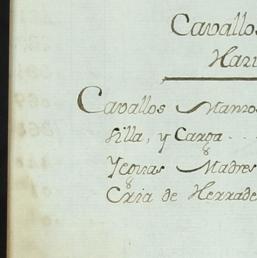 Cavallos
Han
Cavallos Manzo
Silla, y Carga ..
Yeguas Madres
Cria de Herrade